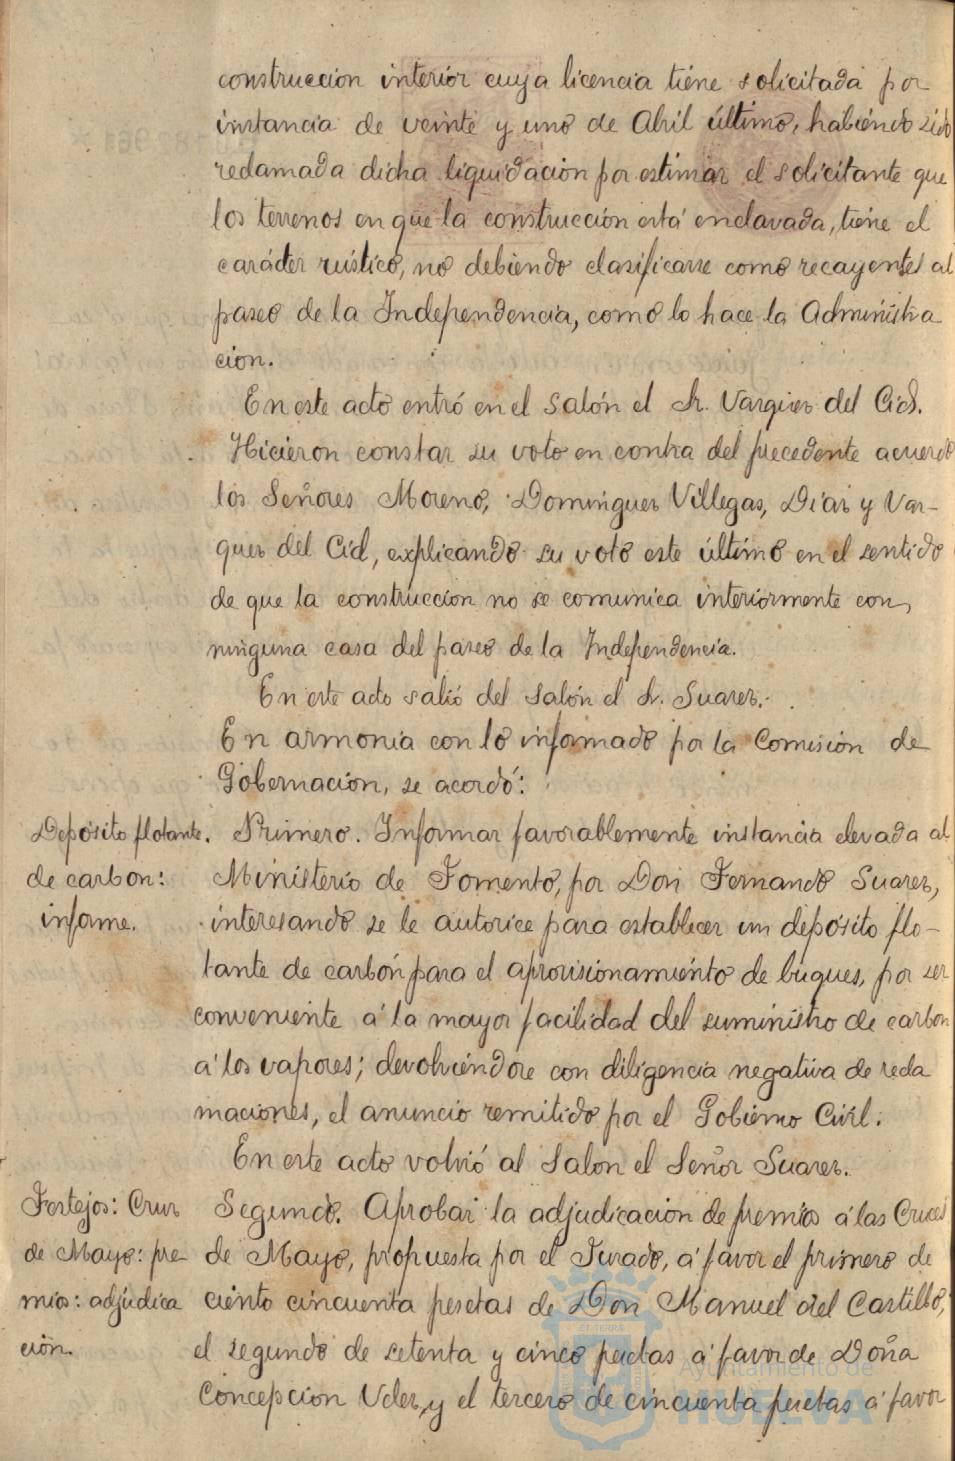 construccion interior cuya licencia tiene solicitada por
instancia de veinte y uno de Abril último, habiendo sido
reclamada dicha liquidacion por estimar el solicitante que
los terrenos en que la construcción está enclavada, tiene el
carácter rústico, no debiendo clasificarse como recayentes al
paseo de la Independencia, como lo hace la Administra
cion.
En este acto entró en el Salón el Sr. Vazquez del Cid.
Hicieron constar su voto en contra del precedente acuerdo
los Señores Moreno, Dominguez Villegas, Diaz y Vaz-
quez del Cid, explicando su voto este último en el sentido
de que la construccion no se comunica interiormente con
ninguna casa del paseo de la Independencia.
En este acto salió del Salón el Sr. Suarez.
En armonia con lo informado por la Comisión de
Gobernación, se acordó:
Depósito flotante
de carbon:
informe.
Primero. Informar favorablemente instancia elevada al
Ministerio de Fomento, por Don Fernando Suarez,
interesando se le autorice para establecer un depósito flo-
tante de carbón para el aprovisionamiento de buques, por ser
conveniente á la mayor facilidad del suministro de carbon
á los vapores; devolviéndose con diligencia negativa de recla
maciones, el anuncio remitido por el Gobierno Civil.
En este acto volvió al Salon el Señor Suarez.
Festejos: Cruz
de Mayo: pre
mios: adjudica
ción.
Segundo. Aprobar la adjudicacion de premios á las Cruces
de Mayo, propuesta por el Jurado, á favor el primero de
ciento cincuenta pesetas de Don Manuel del Castillo,
el segundo de setenta y cinco pesetas á favor de Doña
Concepcion Velez, y el tercero de cincuenta pesetas á favor
Ayuntamiento de
HUELVA